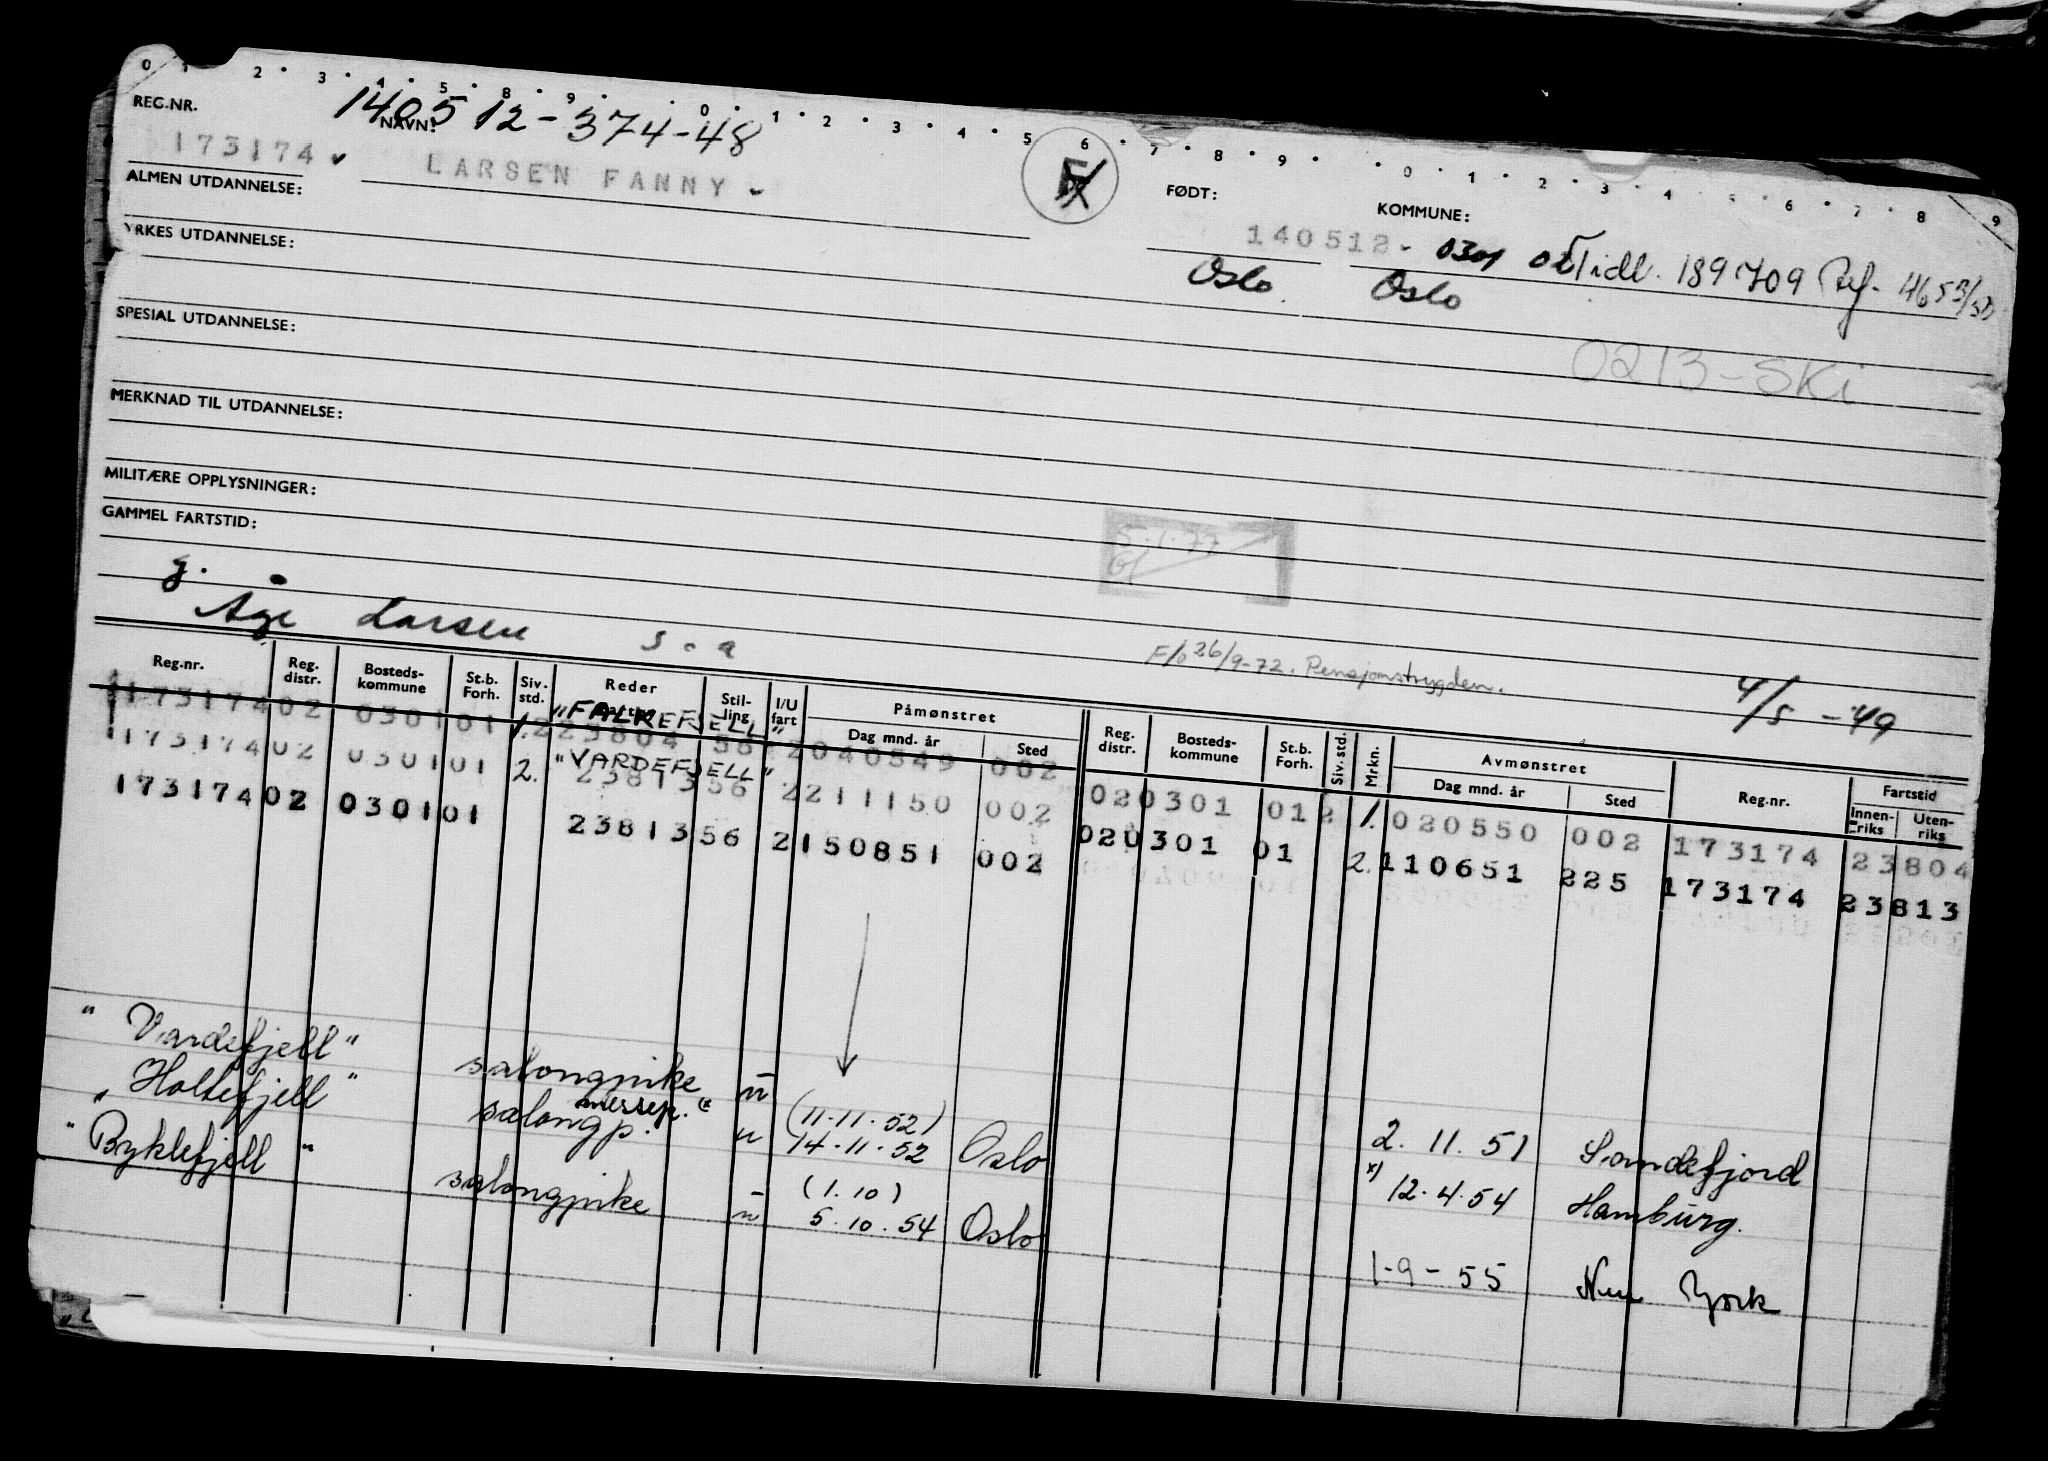 0 1 2 3 4 5 8 9 0 1 2 3 4 5 6 7 8 9 0 1 2 3 4 5 6 7 8 9
REG.NR. 140512-374-48
NAVN:
173174 LARSEN FANNY
FØDT: KOMMUNE:
140512 0301 Tidl. 189709 Ref. 4653/50
Oslo Oslo
ALMEN UTDANNELSE:
YRKES UTDANNELSE:
0213-SKi
SPESIAL UTDANNELSE:
MERKNAD TIL UTDANNELSE:
MILITÆRE OPPLYSNINGER:
GAMMEL FARTSTID:
5.1.77
g. Åge Larsen s-a
F/o 26/9-72. Pensjonstrygden.
4/5-49
Reg.nr. Reg. distr. Bosteds-kommune St.b. Forh. Siv. std. Reder Stil-ling I/U fart Påmønstret Dag mnd. år Sted Reg. distr. Bosteds-kommune St.b. Forh. Siv. std. Mrkn. Avmønstret Dag mnd. år Sted Reg.nr. Fartstid Innen-riks Uten-riks
"FALKEFJELL"
173174 02 0301 01 1. 223804 56 2 040549 002 02 0301 01 2 1. 020550 002 173174 23804
"VARDEFJELL"
173174 02 0301 01 2. 23813 56 2 211150 002 02 0301 01 2. 110651 225 173174 23813
173174 02 0301 01 23813 56 2 150851 002
"Vardefjell" salongpike u 2.11.51 Sandefjord
messep. (11-11.52)
"Holtefjell" salongp. u 14-11-52 Oslo x) 12.4.54 Hamburg.
(1.10)
"Byklefjell" salongpike u 5.10.54 Oslo 1-9-55 New York